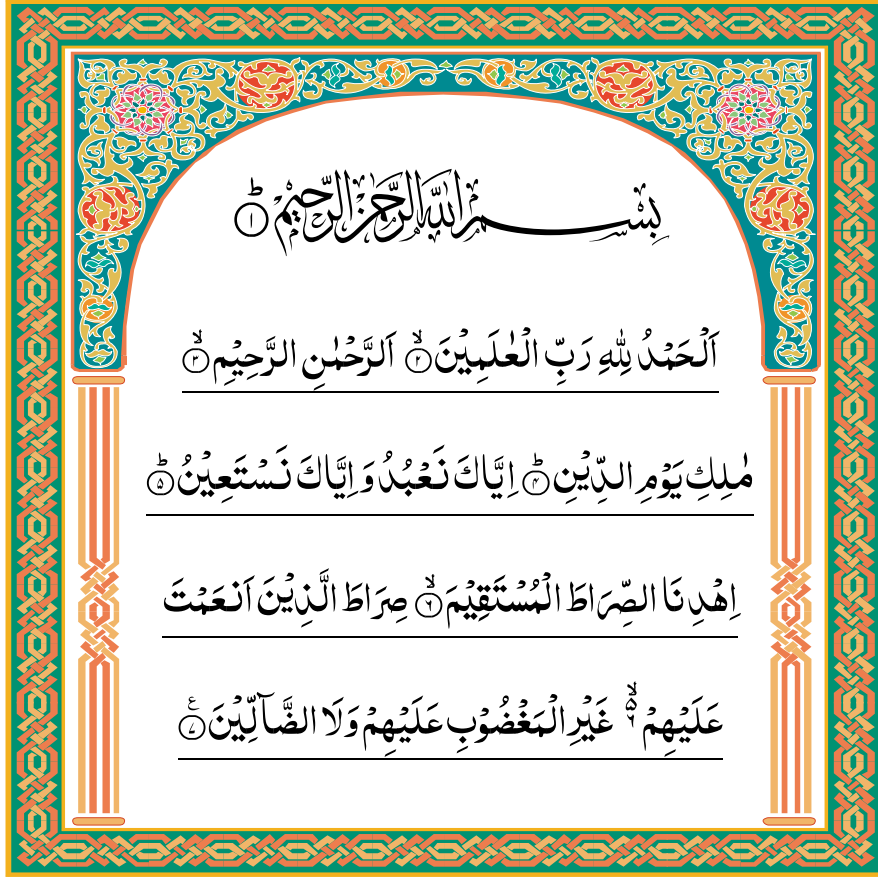 بِسْمِ اللّٰهِ الرَّحْمٰنِ الرَّحِيْمِ ؕ۝۱
اَلْحَمْدُ لِلّٰهِ رَبِّ الْعٰلَمِيْنَ ۙ۝۲ الرَّحْمٰنِ الرَّحِيْمِ ۙ۝۳
مٰلِكِ يَوْمِ الدِّيْنِ ؕ۝۴ اِيَّاكَ نَعْبُدُ وَ اِيَّاكَ نَسْتَعِيْنُ ؕ۝۵
اِهْدِنَا الصِّرَاطَ الْمُسْتَقِيْمَ ۙ۝۶ صِرَاطَ الَّذِيْنَ اَنْعَمْتَ
عَلَيْهِمْ ۙ۬ۦ۶ غَيْرِ الْمَغْضُوْبِ عَلَيْهِمْ وَلَا الضَّآلِّيْنَ ۠۝۷ ع